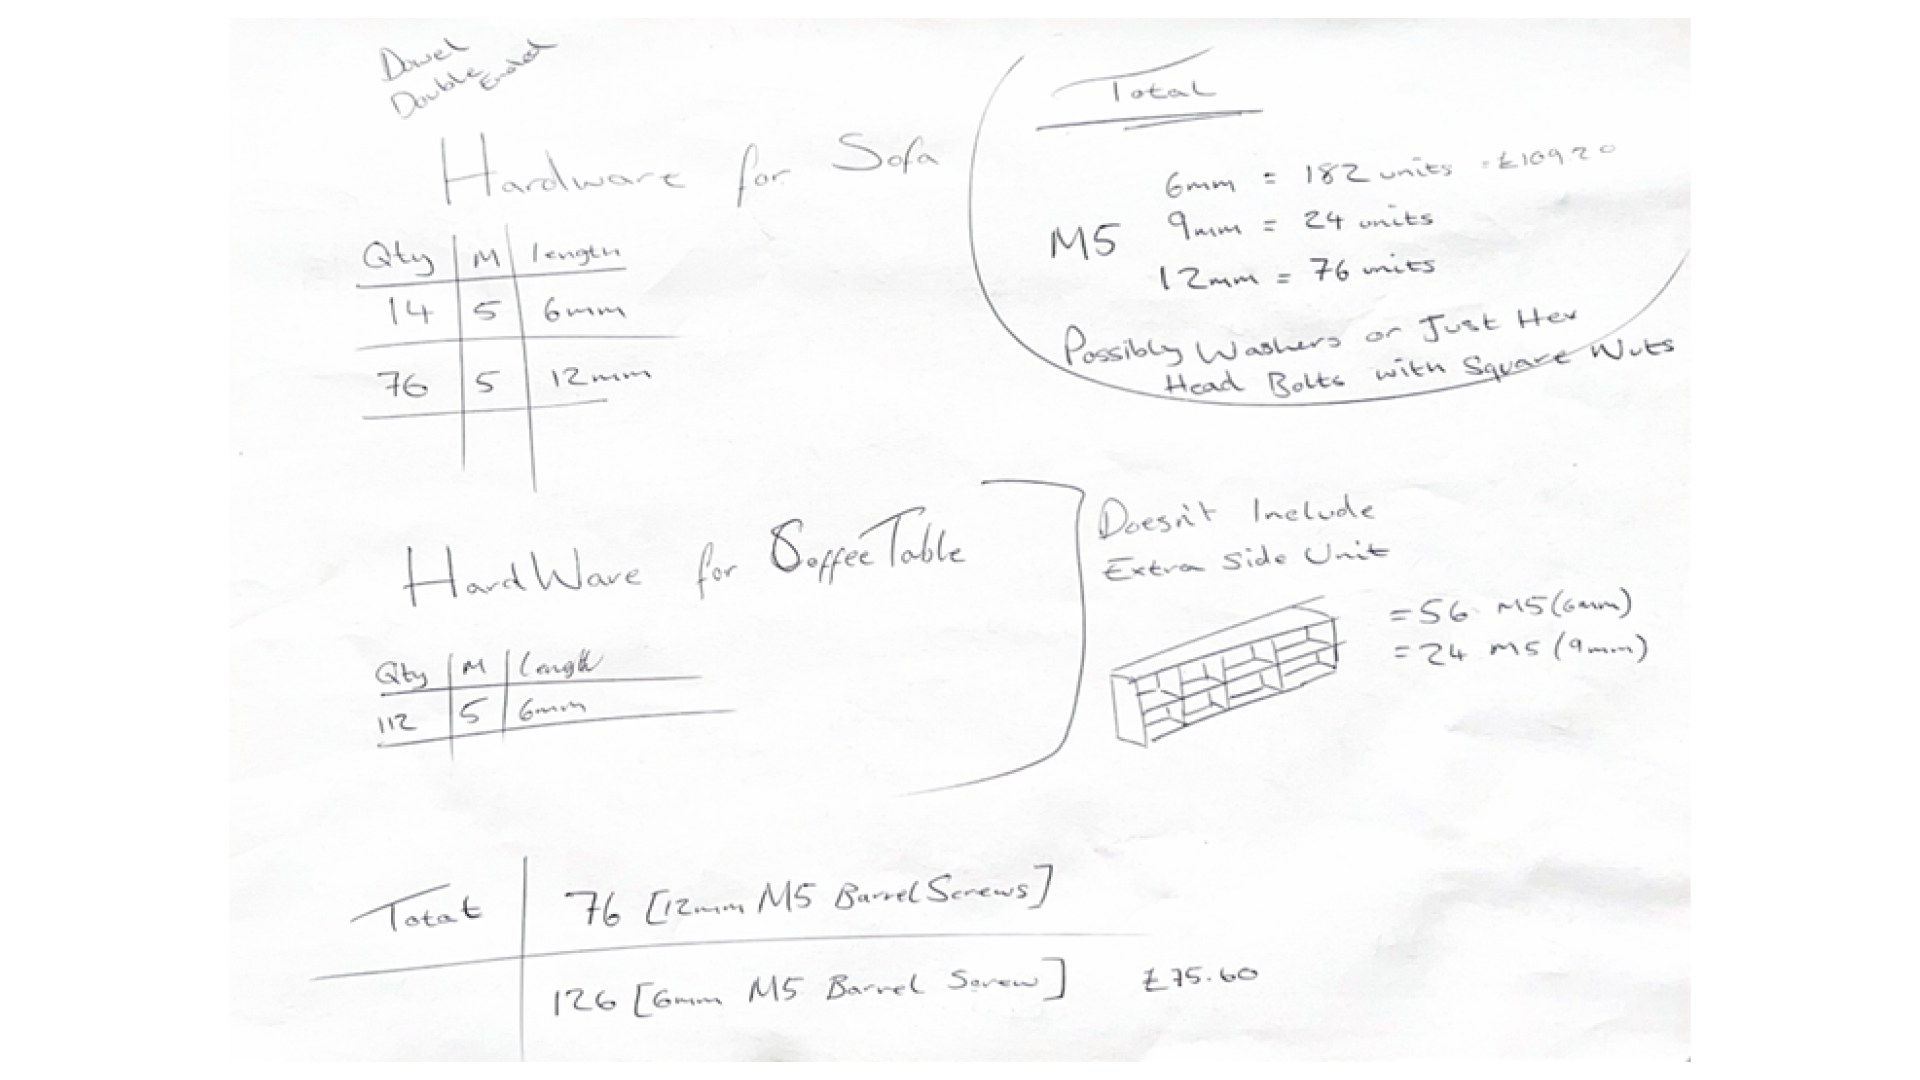 Dowel
Double Ended
Hardware for Sofa
Qty M length
14 5 6mm
76 5 12mm
Total
6mm = 182 units = £109.20
M5 9mm = 24 units
12mm = 76 units
Possibly Washers or Just Hex
Head Bolts with Square Nuts
HardWare for Coffee Table
Qty M length
112 5 6mm
Doesn't Include
Extra Side Unit
= 56 M5 (6mm)
= 24 M5 (9mm)
Total 76 [12mm M5 Barrel Screws]
126 [6mm M5 Barrel Screw] £75.60